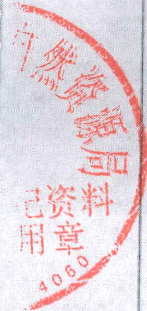 然资源局
资料
用章
4060